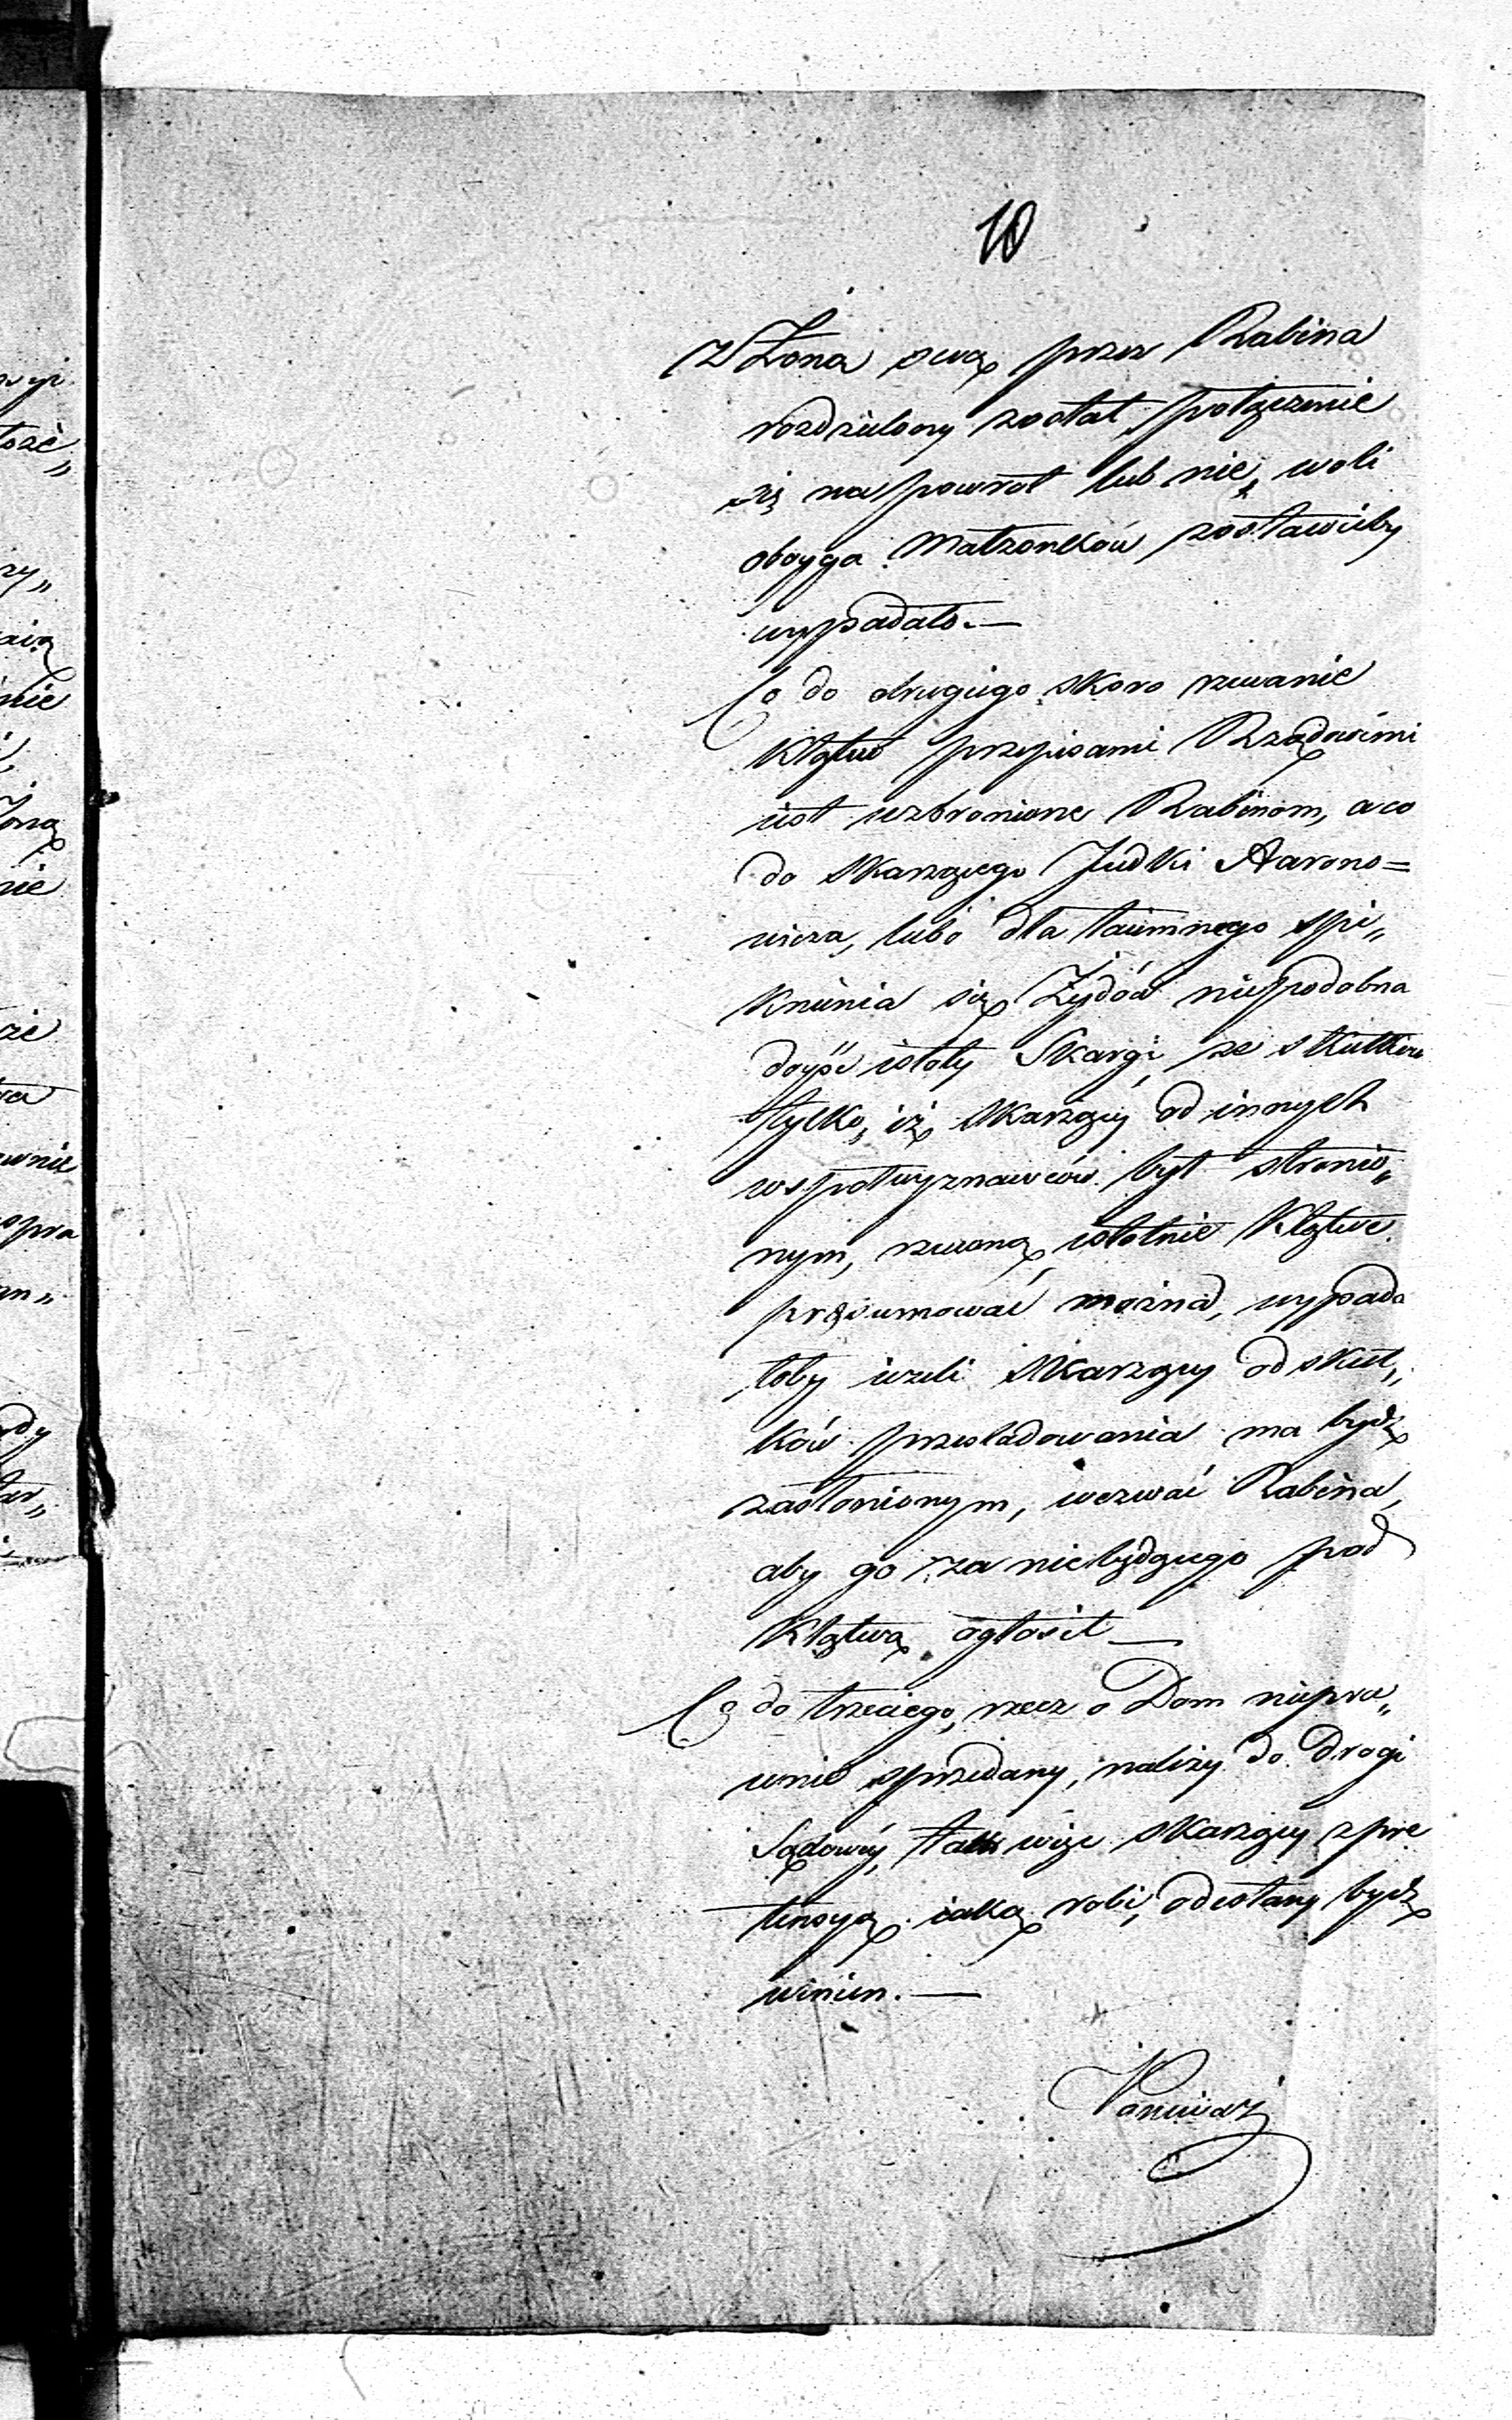 10
z Żoną swą przez Rabina
rozdzielony został, połączenie
się na powrót lub nie, woli
oboyga Małżonków zostawićby
wypadało.—
Co do drugiego skoro rzucanie
Klątw przepisami Rządowemi
iest wzbronione Rabinom, a co
do skarżącego Judki Aarono=
wicza, lubo dla taiemnego spi„
knienia się Żydów niepodobna
doyść istoty Skargi, ze skutków
tylko, iż skarżący od innych
współwyznawców był stronio„
nym, rzuconą istotnie Klątwę
prezumować można, wypada
łoby ieżeli skarżący od skut„
ków prześladowania ma bydź
zasłonionym, wezwać Rabina,
aby go za niebędącego pod
Klątwą ogłosił —
Co do trzeciego, rzecz o Dom niepra„
wnie sprzedany, należy do Drogi
Sądowéy, tak więc skarżący z pre
tensyą iaką robi, odesłany bydź
winien.—